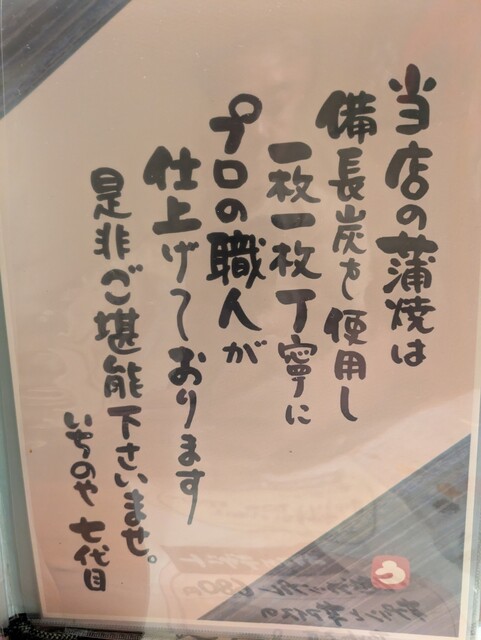 当店の蒲焼は
備長炭を使用し
一枚一枚丁寧に
プロの職人が
仕上げております
是非ご堪能下さいませ。
いちのや 七代目
う